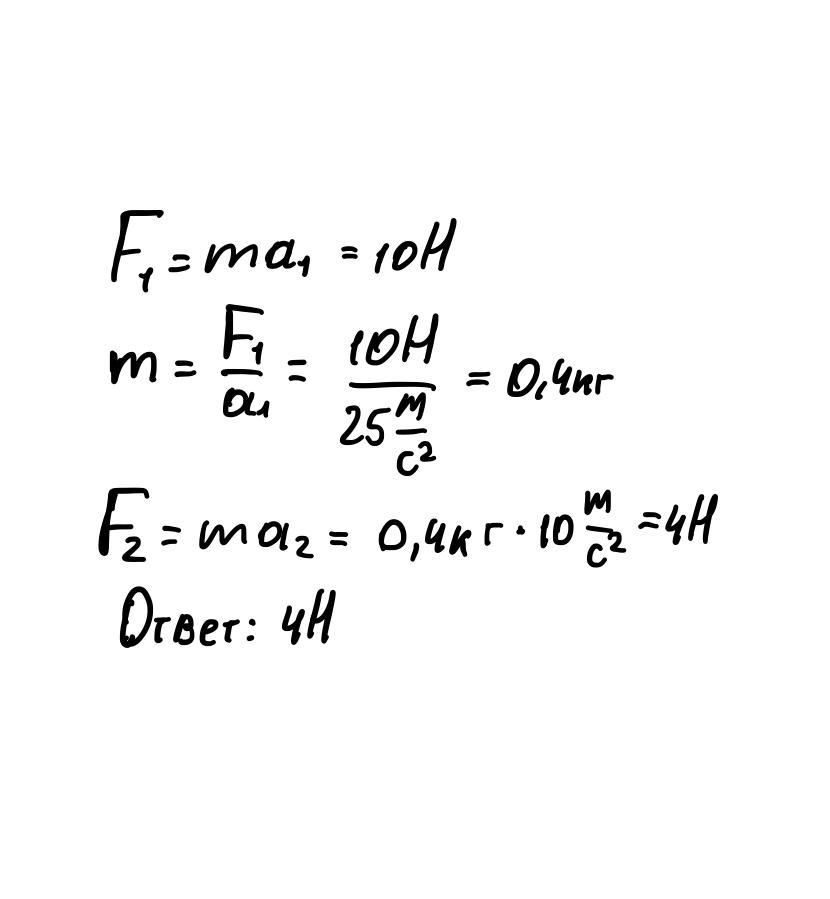 F₁ = ma₁ = 10Н
m = F₁/a₁ = 10Н/25 м/с² = 0,4кг
F₂ = ma₂ = 0,4кг · 10 м/с² = 4Н
Ответ: 4Н